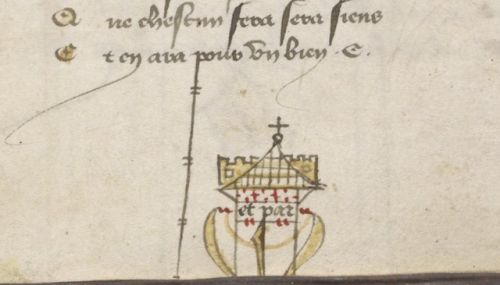 Q ue chescun sera sera siens
E t en ara pour vn bien C.
et par